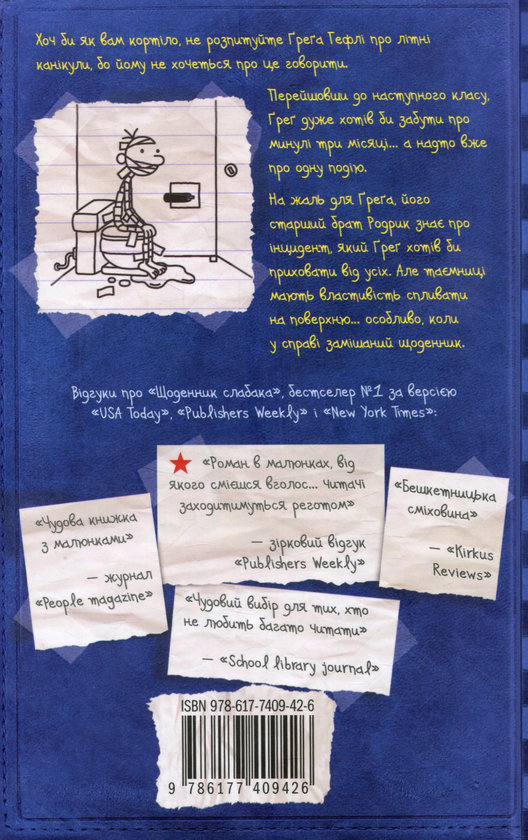 Хоч би як вам кортіло, не розпитуйте Ґреґа Гефлі про літні
канікули, бо йому не хочеться про це говорити.
Перейшовши до наступного класу,
Ґреґ дуже хотів би забути про
минулі три місяці... а надто вже
про одну подію.
На жаль для Ґреґа, його
старший брат Родрик знає про
інцидент, який Ґреґ хотів би
приховати від усіх. Але таємниці
мають властивість спливати
на поверхню... особливо, коли
у справі замішаний щоденник.
Відгуки про «Щоденник слабака», бестселер №1 за версією
«USA Today», «Publishers Weekly» і «New York Times»:
«Роман в малюнках, від
якого смієшся вголос... читачі
заходитимуться реготом»
— зірковий відгук
«Publishers Weekly»
«Бешкетницька
сміховина»
— «Kirkus
Reviews»
«Чудова книжка
з малюнками»
— журнал
«People magazine»
«Чудовий вибір для тих, хто
не любить багато читати»
— «School library journal»
ISBN 978-617-7409-42-6
9 786177 409426